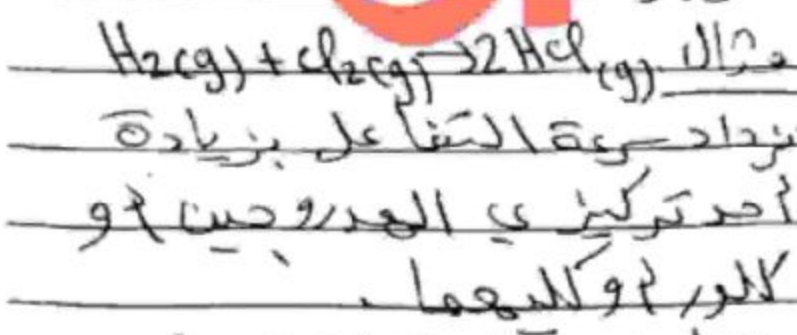 مثال H2(g) + Cl2(g) → 2HCl(g)
تزداد سرعة التفاعل بزيادة
أحد تركيزي الهدروجين أو
كلور أو كليهما.